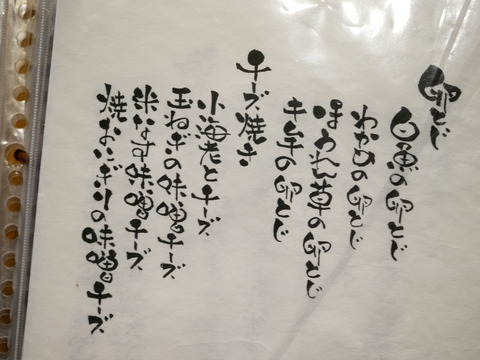 卵とじ
白魚の卵とじ
わかめの卵とじ
ほうれん草の卵とじ
の卵とじ
チーズ焼き
小海老とチーズ
玉ねぎの味噌チーズ
米なす味噌チーズ
焼おにぎりの味噌チーズ